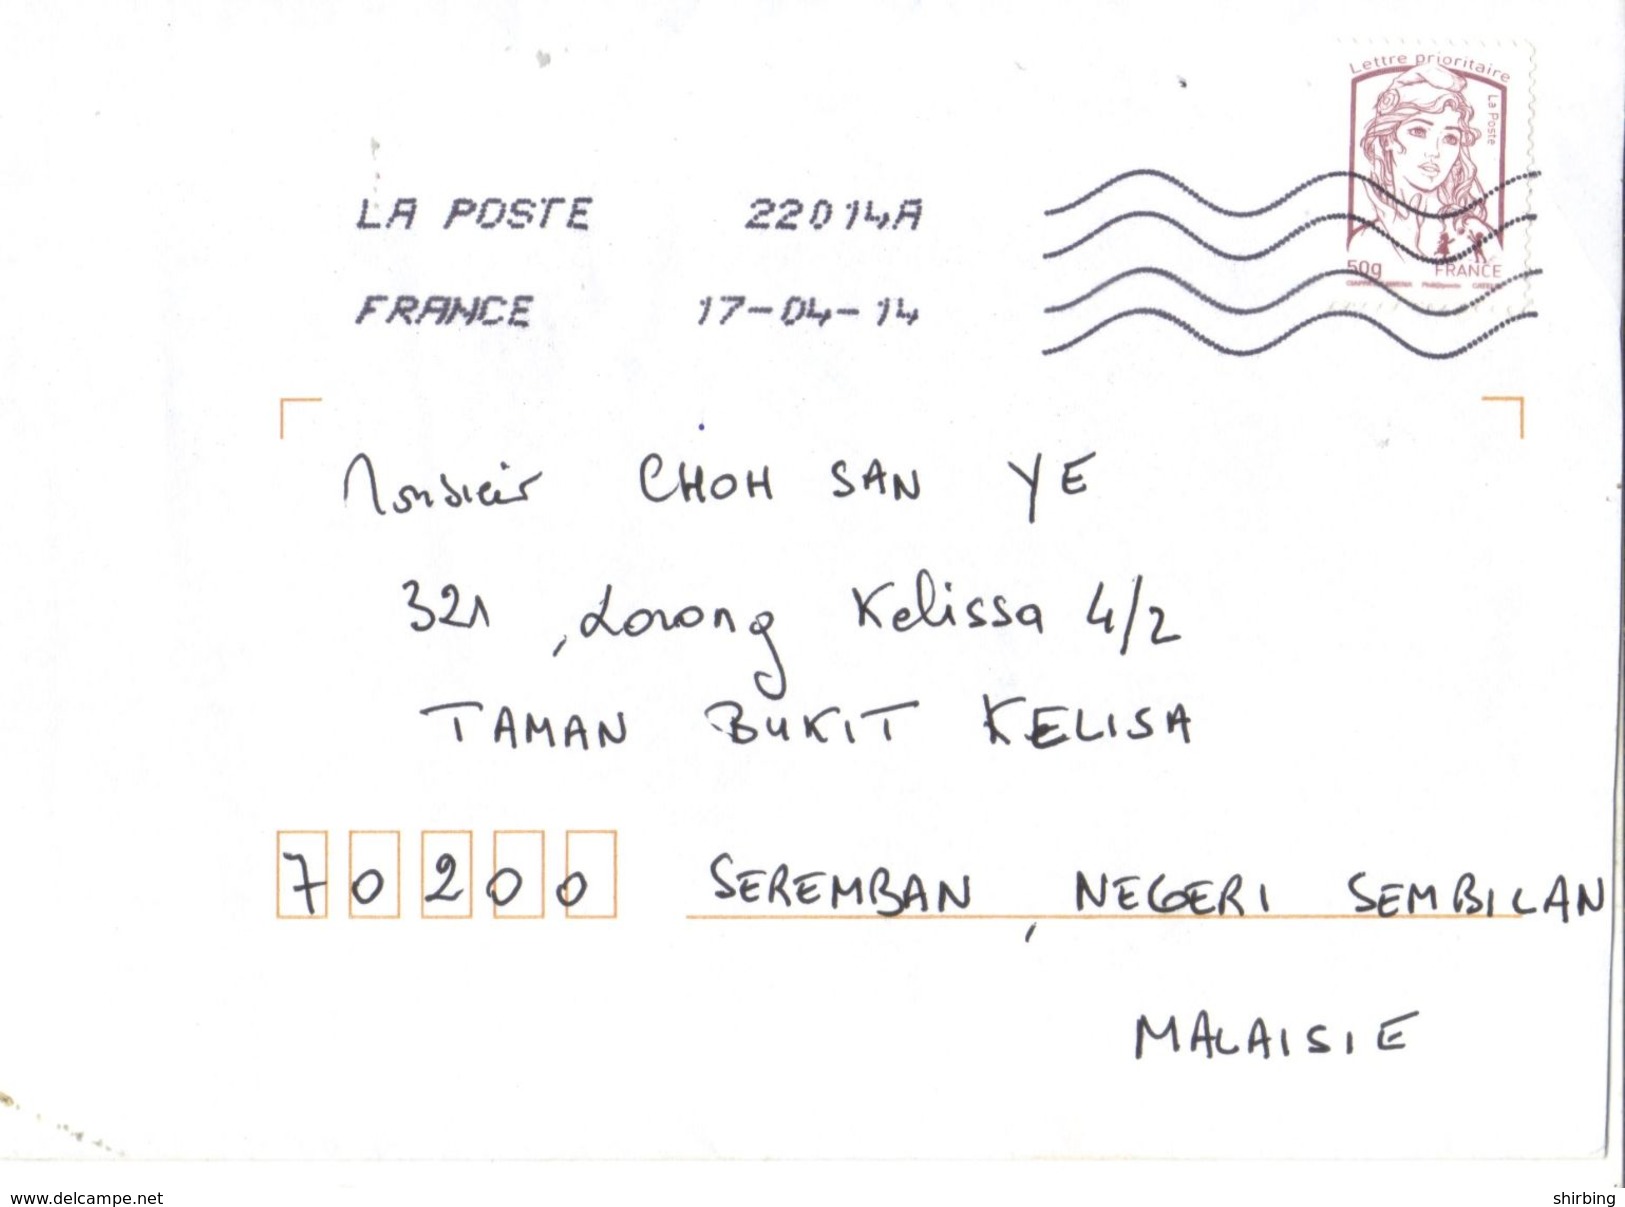 Lettre prioritaire
La Poste
50g FRANCE
LA POSTE 22014A
FRANCE 17-04-14
Monsieur CHOH SAN YE
321, Lorong Kelissa 4/2
TAMAN BUKIT KELISA
70200 SEREMBAN, NEGERI SEMBILAN
MALAISIE
www.delcampe.net
shirbing